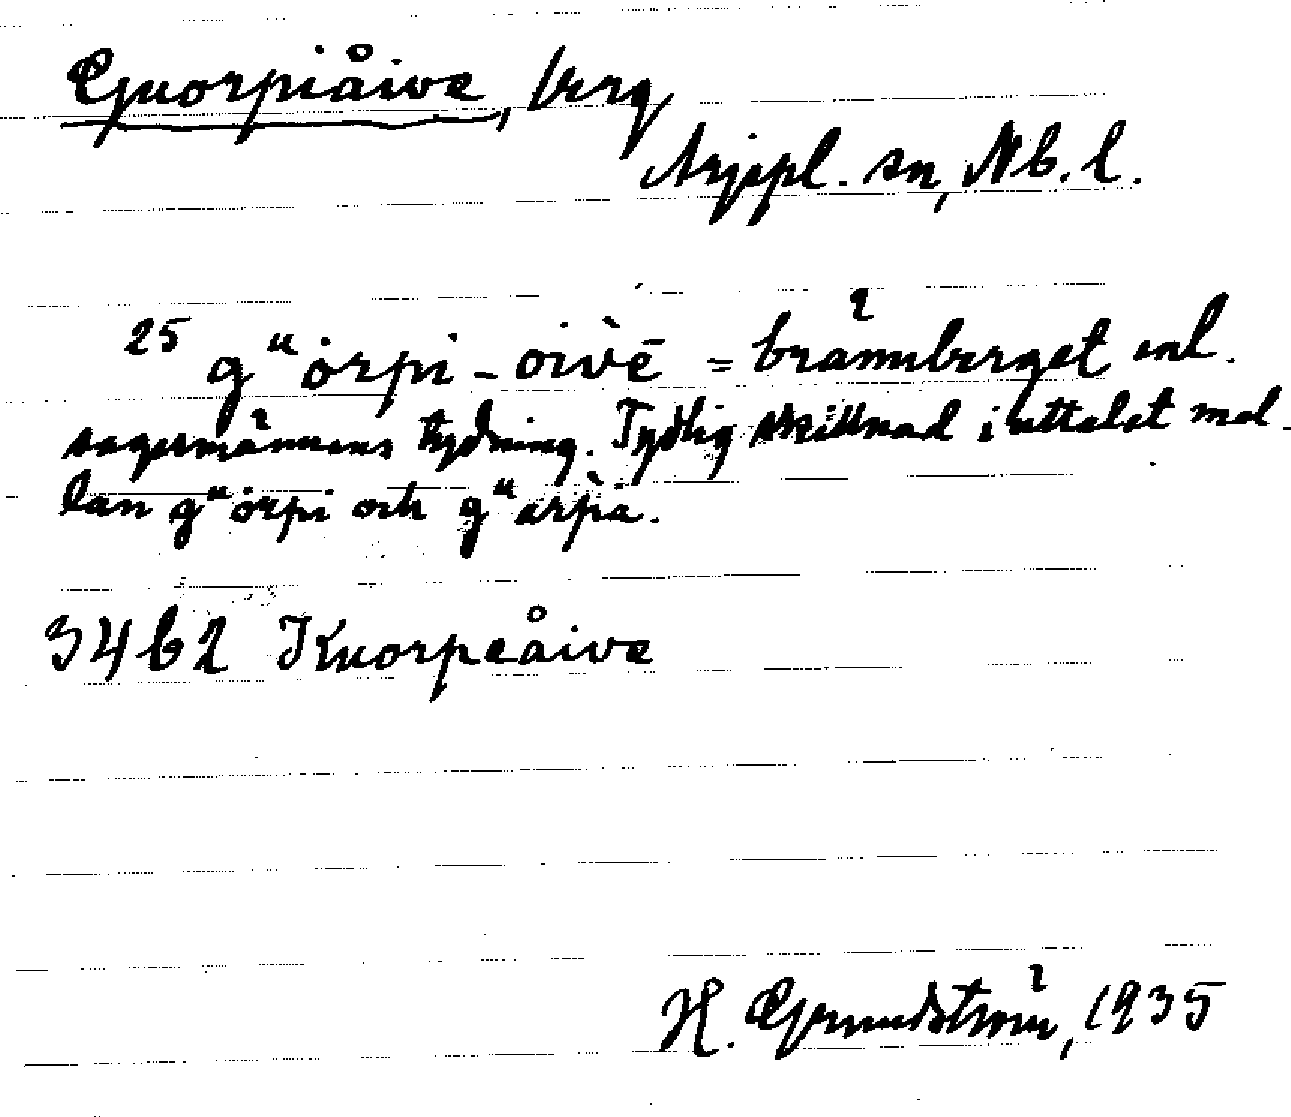 Guorpiåive, berg
Arjepl. sn, Nb. l.
25 gᵘȯrpi - oivē = brännberget enl.
sagesmännens tydning. Tydlig skillnad i uttalet mel-
lan gᵘȯrpi och gᵘarpa.
34b2 Kuorpeåive
H. Grundström, 1935